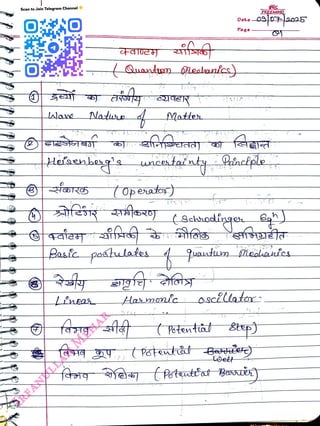 Scan to Join Telegram Channel
Date 03/07/2025
Page 01
क्वांटम यांत्रिकी
( Quantum Mechanics )
① द्रव्यों का तरंगीय व्यवहार
Wave Nature of Matter
② हाइजेनबर्ग का अनिश्चितता का सिद्धांत
Heisenberg's uncertainty Principle
③ संकारक (Operator)
④ श्रोडिंगर समीकरण (Schrodinger Eqn)
⑤ क्वांटम यांत्रिकी के मौलिक अभिग्रहीत
Basic postulates of quantum Mechanics
⑥ रेखीय आवृत्ति दोलित्र
Linear Harmonic oscillator
⑦ विभव सीढ़ी (Potential Step)
विभव कूप (Potential Barrier Well)
विभव रोधिका (Potential Barrier)